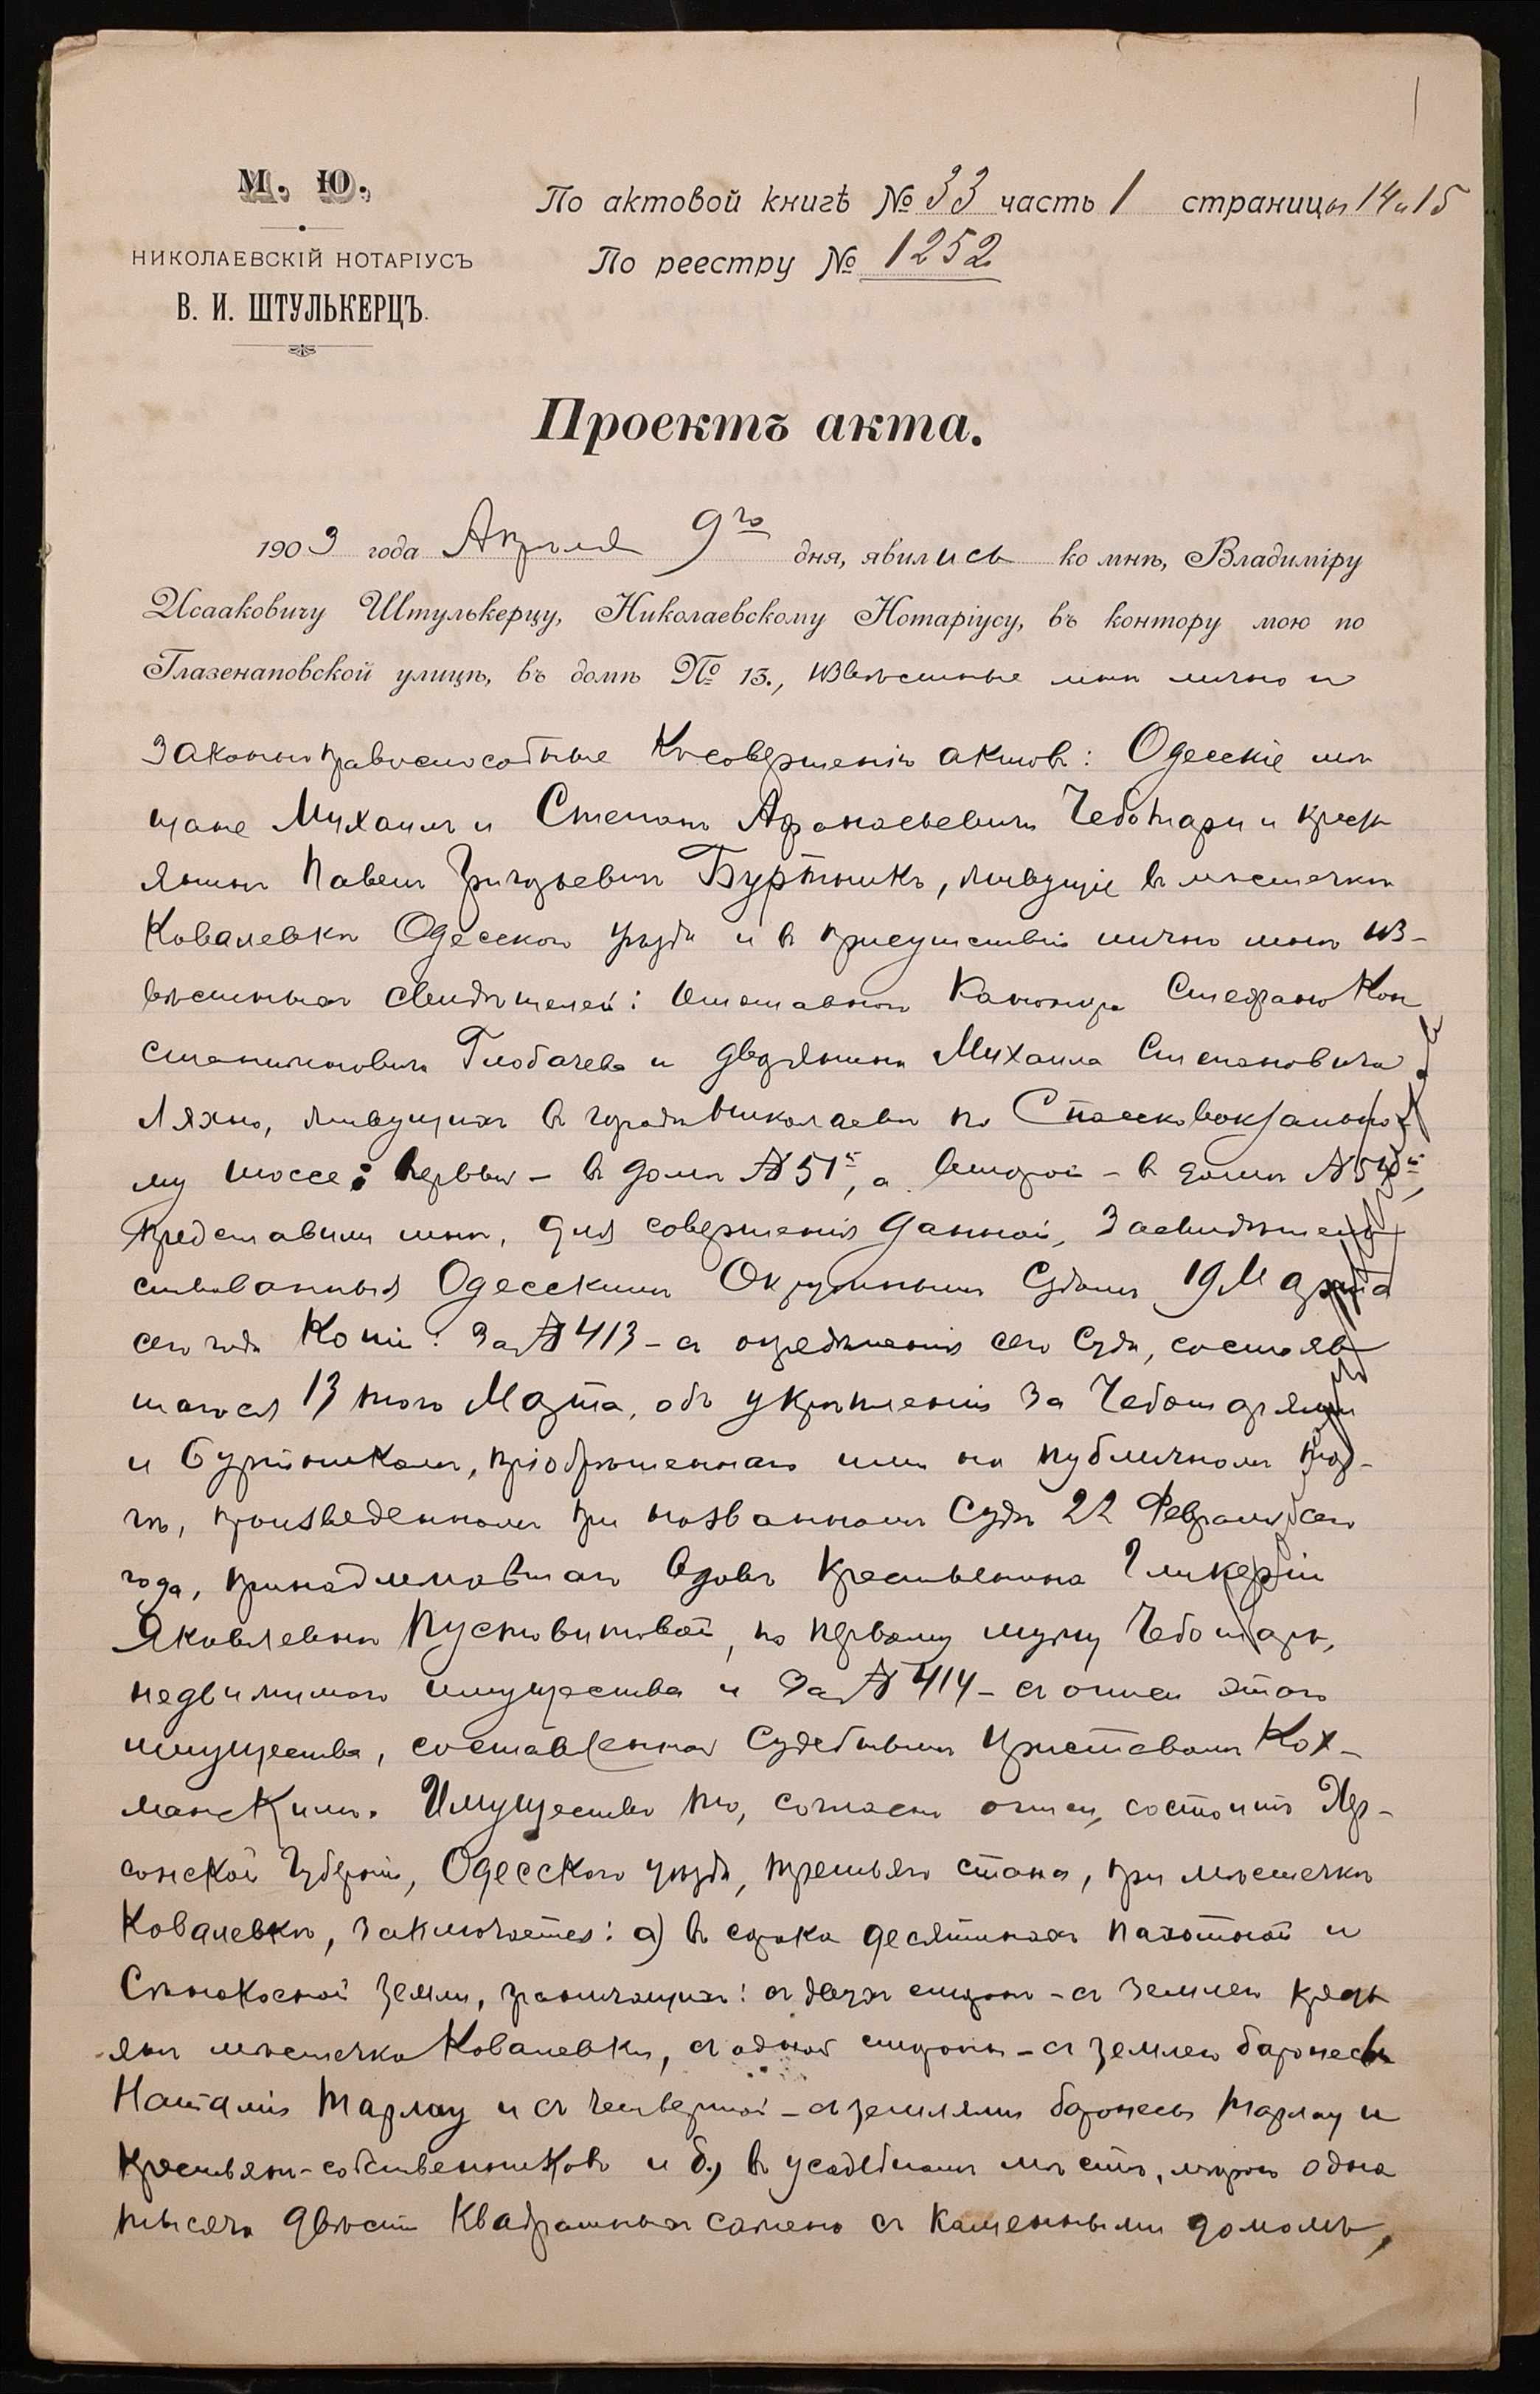 М. Ю.
НИКОЛАЕВСКІЙ НОТАРІУСЪ
В. И. ШТУЛЬКЕРЦЪ.
По актовой книгѣ № 33 часть 1 страницы 14 и 15
По реестру № 1252
Проектъ акта.
1903 года Апрѣля 9го дня, явились ко мнѣ, Владиміру
Исааковичу Штулькерцу, Николаевскому Нотаріусу, въ контору мою по
Глазенаповской улицѣ, въ домѣ № 13., извѣстные мнѣ лично и
законноправоспособные къ совершенію актовъ: Одесскіе мѣ
щане Михаилъ и Степанъ Афанасьевичи Чеботари и крест
янинъ Павелъ Григорьевичъ Буртникъ, живущіе въ мѣстечкѣ
Ковалевкѣ Одесскаго уѣзда и въ присутствіи лично мнѣ из-
вѣстныхъ свидѣтелей: отставного Канонира Стефана Кон
стантиновича Глобачева и дворянина Михаила Степановича
Ляхно, живущихъ въ городѣ Николаевѣ по Спасско вокзально
му шоссе: первый - въ домѣ № 51й, а второй - въ домѣ №
представили мнѣ, для совершенія данной, засвидѣтель
ствованныя Одесскимъ Окружнымъ Судомъ 19 Марта
сего года копіи: за № 413 - съ опредѣленія сего Суда, состояв
шагося 13 того Марта, объ укрѣпленіи за Чеботарями
и Буртникомъ, пріобрѣтеннаго ими на публичномъ тор-
гѣ, произведенномъ при названномъ Судѣ 22 Февраля сего
года, принадлежавшаго вдовѣ крестьянина Гликеріи
Яковлевнѣ Пустовитовой, по первому мужу Чеботарь,
недвижимаго имущества и за № 414 - съ описи этого
имущества, составленной Судебнымъ Приставомъ Кох-
манскимъ. Имущество то, согласно описи, состоитъ Хер-
сонской Губерніи, Одесскаго уѣзда, третьяго стана, при мѣстечкѣ
Ковалевкѣ, заключается: а) въ сорока десятинахъ пахотной и
сѣнокосной земли, граничащихъ: съ двухъ сторонъ - съ землею крест
янъ мѣстечка Ковалевки, съ одной стороны - съ землею баронессы
Наталіи Тарлау и съ четвертой - съ землями баронессы Тарлау и
крестьянъ-собственниковъ и б.) въ усадебномъ мѣстѣ, мѣрою одна
тысяча двѣсти квадратныхъ сажень съ каменными домомъ,